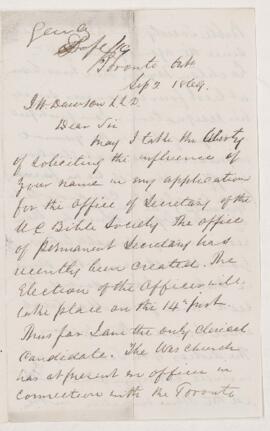 Toronto Ont
Sep 2 1869.
J W Dawson LLD.
Dear Sir
May I take the liberty
of soliciting the influence of
your name in my application
for the office of Secretary of the
U C Bible Society. The office
of permanent Secretary has
recently been created. The
Election of the Officer will
take place on the 14th inst.
Thus far I am the only clerical
Candidate. The Wes church
has at present no officer in
connection with the Toronto